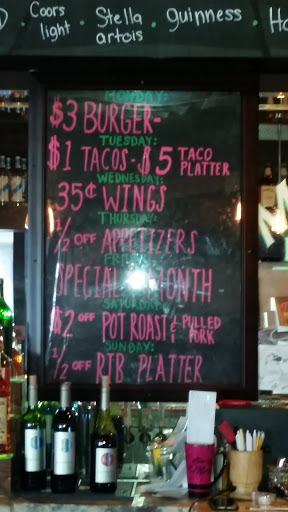 Coors light · Stella artois · Guinness ·
MONDAY:
$3 BURGER-
TUESDAY:
$1 TACOS - $5 TACO PLATTER
WEDNESDAY:
35¢ WINGS
THURSDAY:
1/2 OFF APPETIZERS
SPECIAL MONTH
SATURDAY:
$2 OFF POT ROAST & PULLED PORK
SUNDAY:
1/2 OFF RIB PLATTER